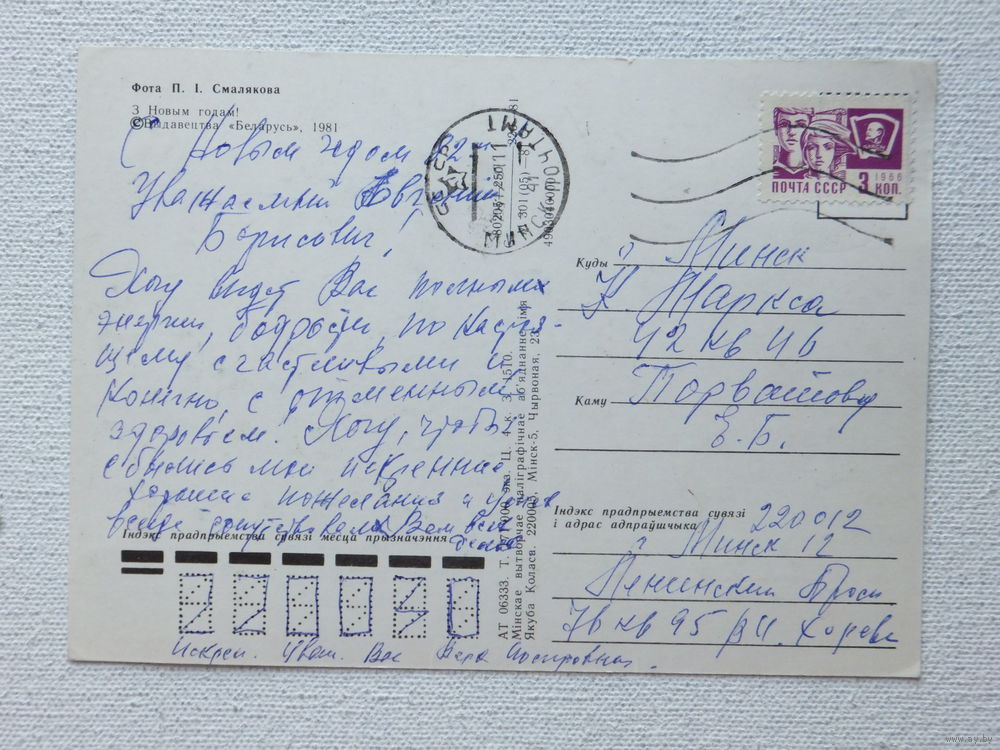 Фота П. І. Смалякова
З Новым годам!
© Выдавецтва «Беларусь», 1981
С Новым годом 82 м
Уважаемый Евгений
Борисович!
Хочу видеть Вас полным
энергии, бодрости, по настоя-
щему счастливыми и
конечно, с отменным
здоровьем. Хочу, чтобы
сбылись мои искренние
хорошие пожелания и успех
всегда сопутствовал Вам
Індэкс прадпрыемства сувязі месца прызначэння
Искрен. Уваж. Вас Вера
АТ 06333. Т.
Мінскае вытворчае паліграфічнае аб'яднанне імя
Якуба Коласа. 220005, Мінск-5, Чырвоная, 23.
МИНСК ПОЧТАМТ
ПОЧТА СССР
3 КОП.
1966
Куды г. Минск
К. Маркса
42 кв 46
Каму
Е. Б.
Індэкс прадпрыемства сувязі
і адрас адпраўшчыка
220012
г Минск 12
Ленинский Просп
76 кв 95